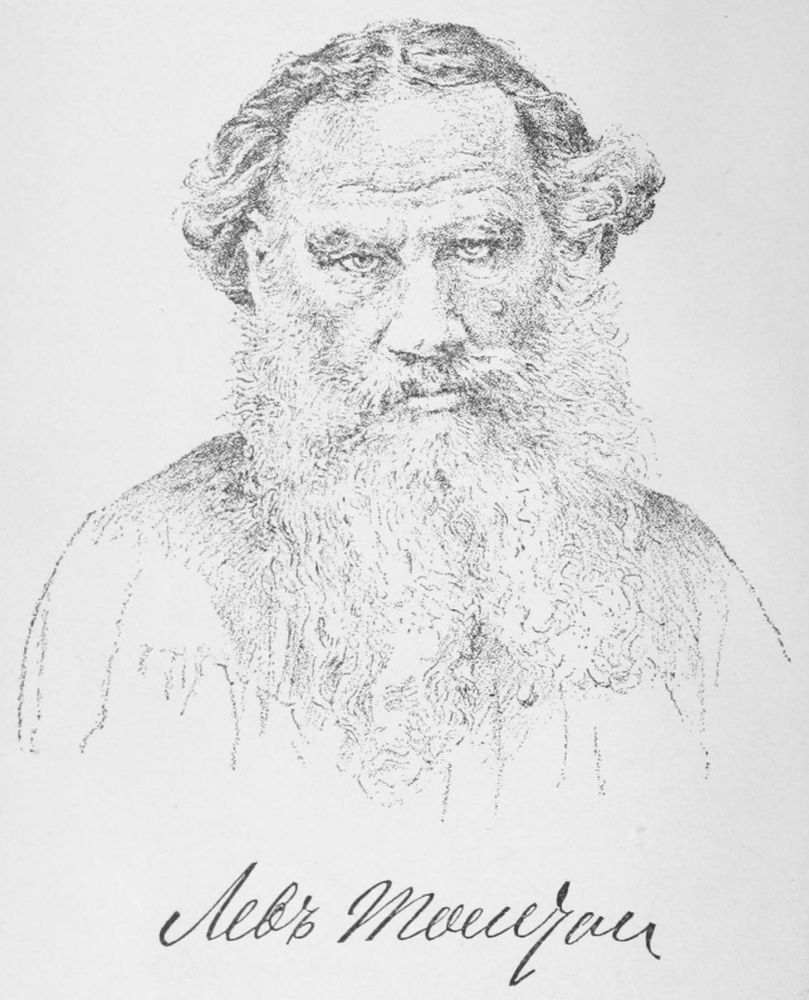 Левъ Толстой